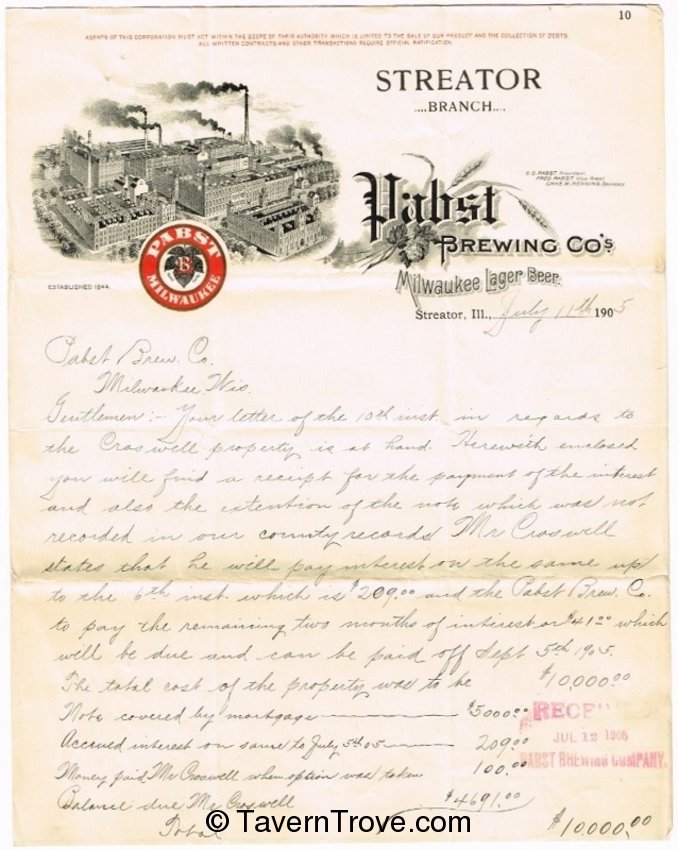 10
AGENTS OF THIS CORPORATION MUST ACT WITHIN THE SCOPE OF THEIR AUTHORITY, WHICH IS LIMITED TO THE SALE OF OUR PRODUCT AND THE COLLECTION OF DEBTS.
ALL WRITTEN CONTRACTS AND OTHER TRANSACTIONS REQUIRE OFFICIAL RATIFICATION.
STREATOR
....BRANCH....
G. G. PABST President
FRED PABST Vice Prest.
CHAS. W. HENNING Secretary
Pabst
BREWING CO'S.
Milwaukee Lager Beer.
PABST
B
MILWAUKEE
ESTABLISHED 1844.
Streator, Ill., July 11th 1905
Pabst Brew. Co.
Milwaukee Wis.
Gentlemen:- Your letter of the 10th inst. in regards to
the Croswell property is at hand. Herewith enclosed
you will find a receipt for the payment of the interest
and also the extention of the note which was not
recorded in our county records Mr Croswell
states that he will pay interest on the same up
to the 6th inst. which is $209.00 and the Pabst Brew. Co.
to pay the remaining two months of interest or $41.20 which
will be due and can be paid off Sept 5th 1905.
The total cost of the property was to be $10,000.00
Note covered by mortgage $5000.00
Accrued interest on same to July 5th 05 209.00
Money paid Mr Croswell when option was taken 100.00
Balance due Mr Croswell $4691.00
Total $10,000.00
RECEIVED
JUL 12 1905
PABST BREWING COMPANY.
© TavernTrove.com